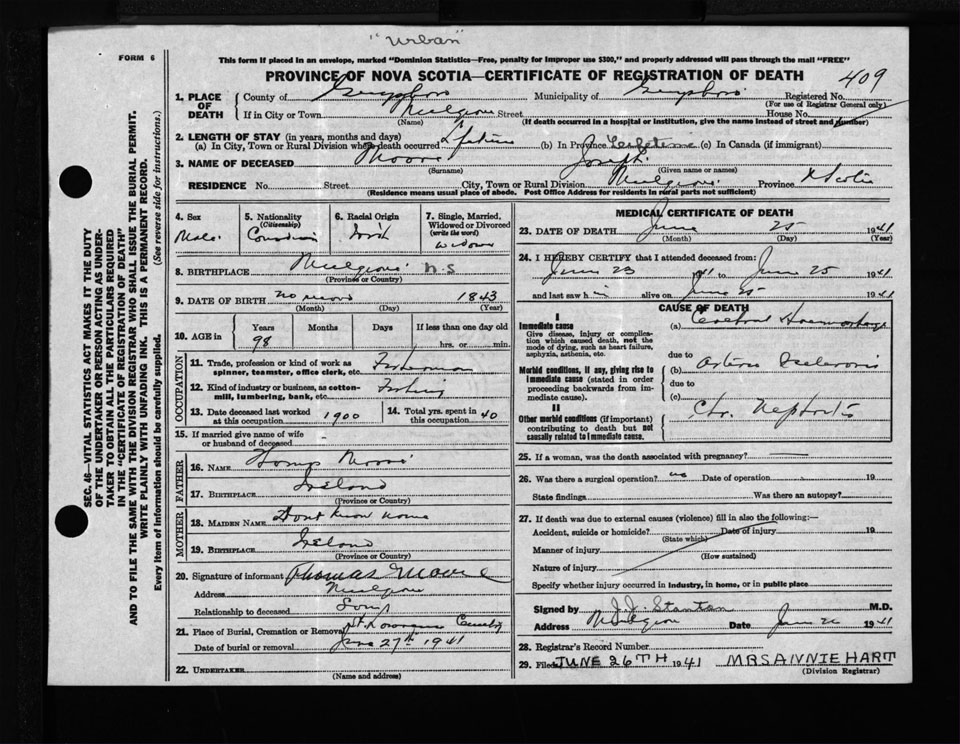 "Urban"
FORM 6
This form if placed in an envelope, marked "Dominion Statistics—Free, penalty for improper use $300," and properly addressed will pass through the mail "FREE"
PROVINCE OF NOVA SCOTIA—CERTIFICATE OF REGISTRATION OF DEATH
409
1. PLACE OF DEATH
County of Guysboro Municipality of Guysboro Registered No.
(For use of Registrar General only)
If in City or Town Mulgrave Street House No.
(Name) (If death occurred in a hospital or institution, give the name instead of street and number)
2. LENGTH OF STAY (in years, months and days)
(a) In City, Town or Rural Division where death occurred Lifetime (b) In Province Lifetime (c) In Canada (if immigrant)
3. NAME OF DECEASED Moore Joseph
(Surname) (Given name or names)
RESIDENCE No. Street City, Town or Rural Division Mulgrave Province N Scotia
(Residence means usual place of abode. Post Office Address for residents in rural parts not sufficient)
4. Sex
Male
5. Nationality
(Citizenship)
Canadian
6. Racial Origin
Irish
7. Single, Married, Widowed or Divorced
(write the word)
Widower
8. BIRTHPLACE Mulgrave N.S
(Province or Country)
9. DATE OF BIRTH 1843
(Month) (Day) (Year)
10. AGE in
Years Months Days If less than one day old
98 hrs. or min.
OCCUPATION
11. Trade, profession or kind of work as spinner, teamster, office clerk, etc. Fisherman
12. Kind of industry or business, as cotton-mill, lumbering, bank, etc. Fishing
13. Date deceased last worked at this occupation 1900
14. Total yrs. spent in this occupation 40
15. If married give name of wife or husband of deceased
FATHER
16. NAME Moore
17. BIRTHPLACE Ireland
(Province or Country)
MOTHER
18. MAIDEN NAME Dont know name
19. BIRTHPLACE Ireland
(Province or Country)
20. Signature of informant Thomas Moore
Address Mulgrave
Relationship to deceased Son
21. Place of Burial, Cremation or Removal Cemetery
Date of burial or removal June 27th 1941
22. UNDERTAKER
(Name and address)
MEDICAL CERTIFICATE OF DEATH
23. DATE OF DEATH June 25 1941
(Month) (Day) (Year)
24. I HEREBY CERTIFY that I attended deceased from:
June 23 1941 to June 25 1941
and last saw him alive on June 25 1941
CAUSE OF DEATH
I
Immediate cause
Give disease, injury or complication which caused death, not the mode of dying, such as heart failure, asphyxia, asthenia, etc.
(a) Cerebral Haemorrhage
due to
Morbid conditions, if any, giving rise to immediate cause (stated in order proceeding backwards from immediate cause).
(b) Arterio Sclerosis
due to
(c)
II
Other morbid conditions (if important) contributing to death but not causally related to immediate cause.
Chr. Nephritis
25. If a woman, was the death associated with pregnancy?
26. Was there a surgical operation? no Date of operation 19
State findings Was there an autopsy?
27. If death was due to external causes (violence) fill in also the following:—
Accident, suicide or homicide? Date of injury 19
(State which)
Manner of injury
(How sustained)
Nature of injury
Specify whether injury occurred in industry, in home, or in public place
Signed by J.J. Stanton M.D.
Address Mulgrave Date June 26 1941
28. Registrar's Record Number
29. Filed JUNE 26TH 1941 MRS ANNIE HART
(Division Registrar)
SEC. 46—VITAL STATISTICS ACT MAKES IT THE DUTY
OF THE UNDERTAKER OR PERSON ACTING AS UNDER-
TAKER TO OBTAIN ALL THE PARTICULARS REQUIRED
IN THE "CERTIFICATE OF REGISTRATION OF DEATH"
AND TO FILE THE SAME WITH THE DIVISION REGISTRAR WHO SHALL ISSUE THE BURIAL PERMIT.
WRITE PLAINLY WITH UNFADING INK. THIS IS A PERMANENT RECORD.
Every item of information should be carefully supplied. (See reverse side for instructions.)